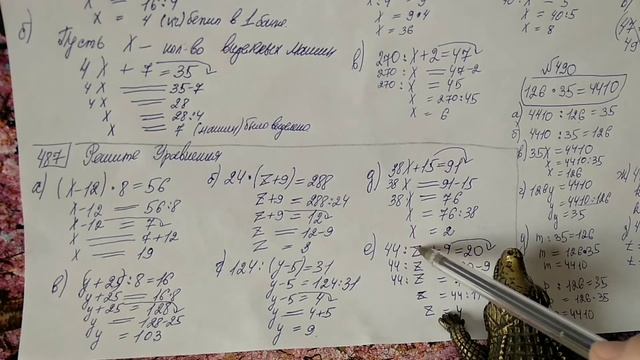 б) Пусть X – кол-во ведённых машин
4X + 7 = 35
4X = 35-7
4X = 28
X = 28:4
X = 7 (машин) было ведено
X = 9•4
X = 36
X = 40:5
X = 8
в) 270:X+2=47
270:X = 47-2
270:X = 45
X = 270:45
X = 6
№490
126•35=4410
а) 4410:126=35
б) 4410:35=126
в) 35X=4410
X=4410:35
X=126
г) 126y=4410
y=4410:126
y=35
д) m:35=126
m=126•35
m=4410
:126=35
=126•35
=4410
487 Решите Уравнения
а) (X-12)•8=56
X-12=56:8
X-12=7
X=7+12
X=19
б) 24•(z+9)=288
z+9=288:24
z+9=12
z=12-9
z=9
в) (y+25):8=16
y+25=16•8
y+25=128
y=128-25
y=103
г) 124:(y-5)=31
y-5=124:31
y-5=4
y=4+5
y=9
д) 38X+15=91
38X=91-15
38X=76
X=76:38
X=2
е) 44:z+9=20
44:z
44:z
z=44:11
z=4